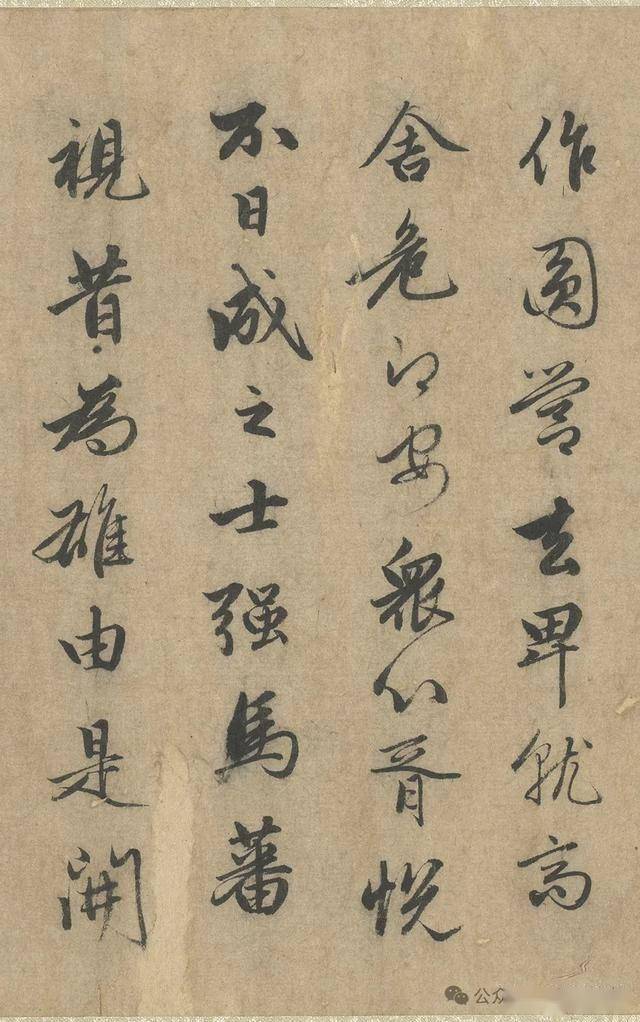 作圓營去卑就高
舍危即安衆心胥悅
不日成之士强馬蕃
視昔為雄由是開
公众